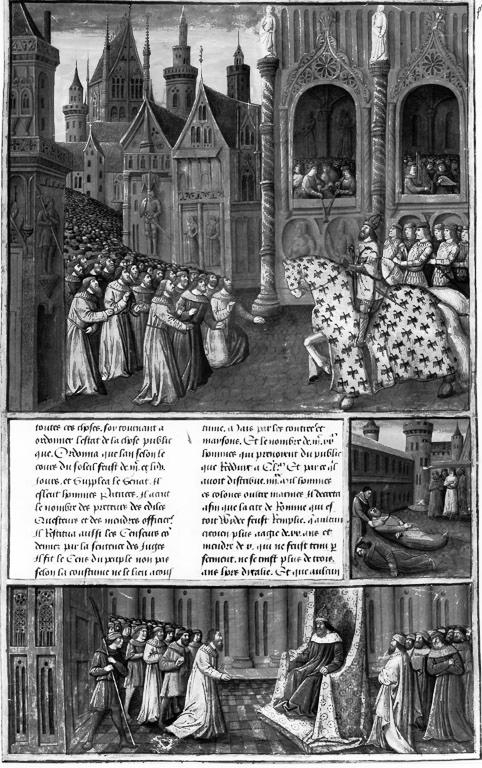 toutes ces choses, soy tournant a
ordonner lestat de la chose public
que. Ordonna que lan selon le
cours du soleil feust de
jours, et Supplea le Senat. Il
esleut hommes Patrices. Il acreut
le nombre des preteurs des ediles
Questeurs et des moindres offices.
Il Restitua aussi les Censeurs
par la sentence des Juges
Il fit le Cens du peuple non pas
selon la coustume ne le lieu
mais par les contrees et
maysons. Et le nombre de
hommes qui prenoient du public
que Reduit a Et par ce
avoit distribue hommes
es colonies oultre marines Il decreta
afin que la cite de Romme qui es
toit Vuide feust Remplie, quaulcun
citoyen plus aagie de ans et
moindre de qui ne feust tenu
ferment, ne se tinst plus de trois
ans hors ditalie. Et que aulcun